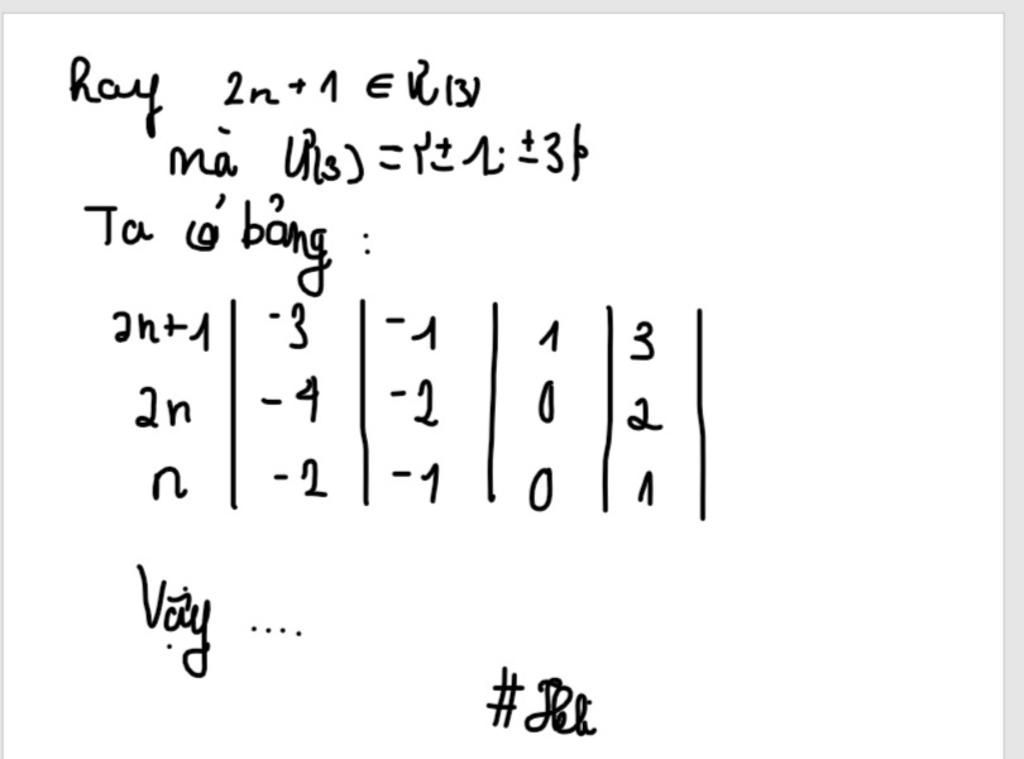 hay 2n + 1 ∈ Ư(3)
mà Ư(3) = {± 1; ± 3}
Ta có bảng :
2n+1 | -3 | -1 | 1 | 3 |
2n | -4 | -2 | 0 | 2 |
n | -2 | -1 | 0 | 1 |
Vậy ....
#